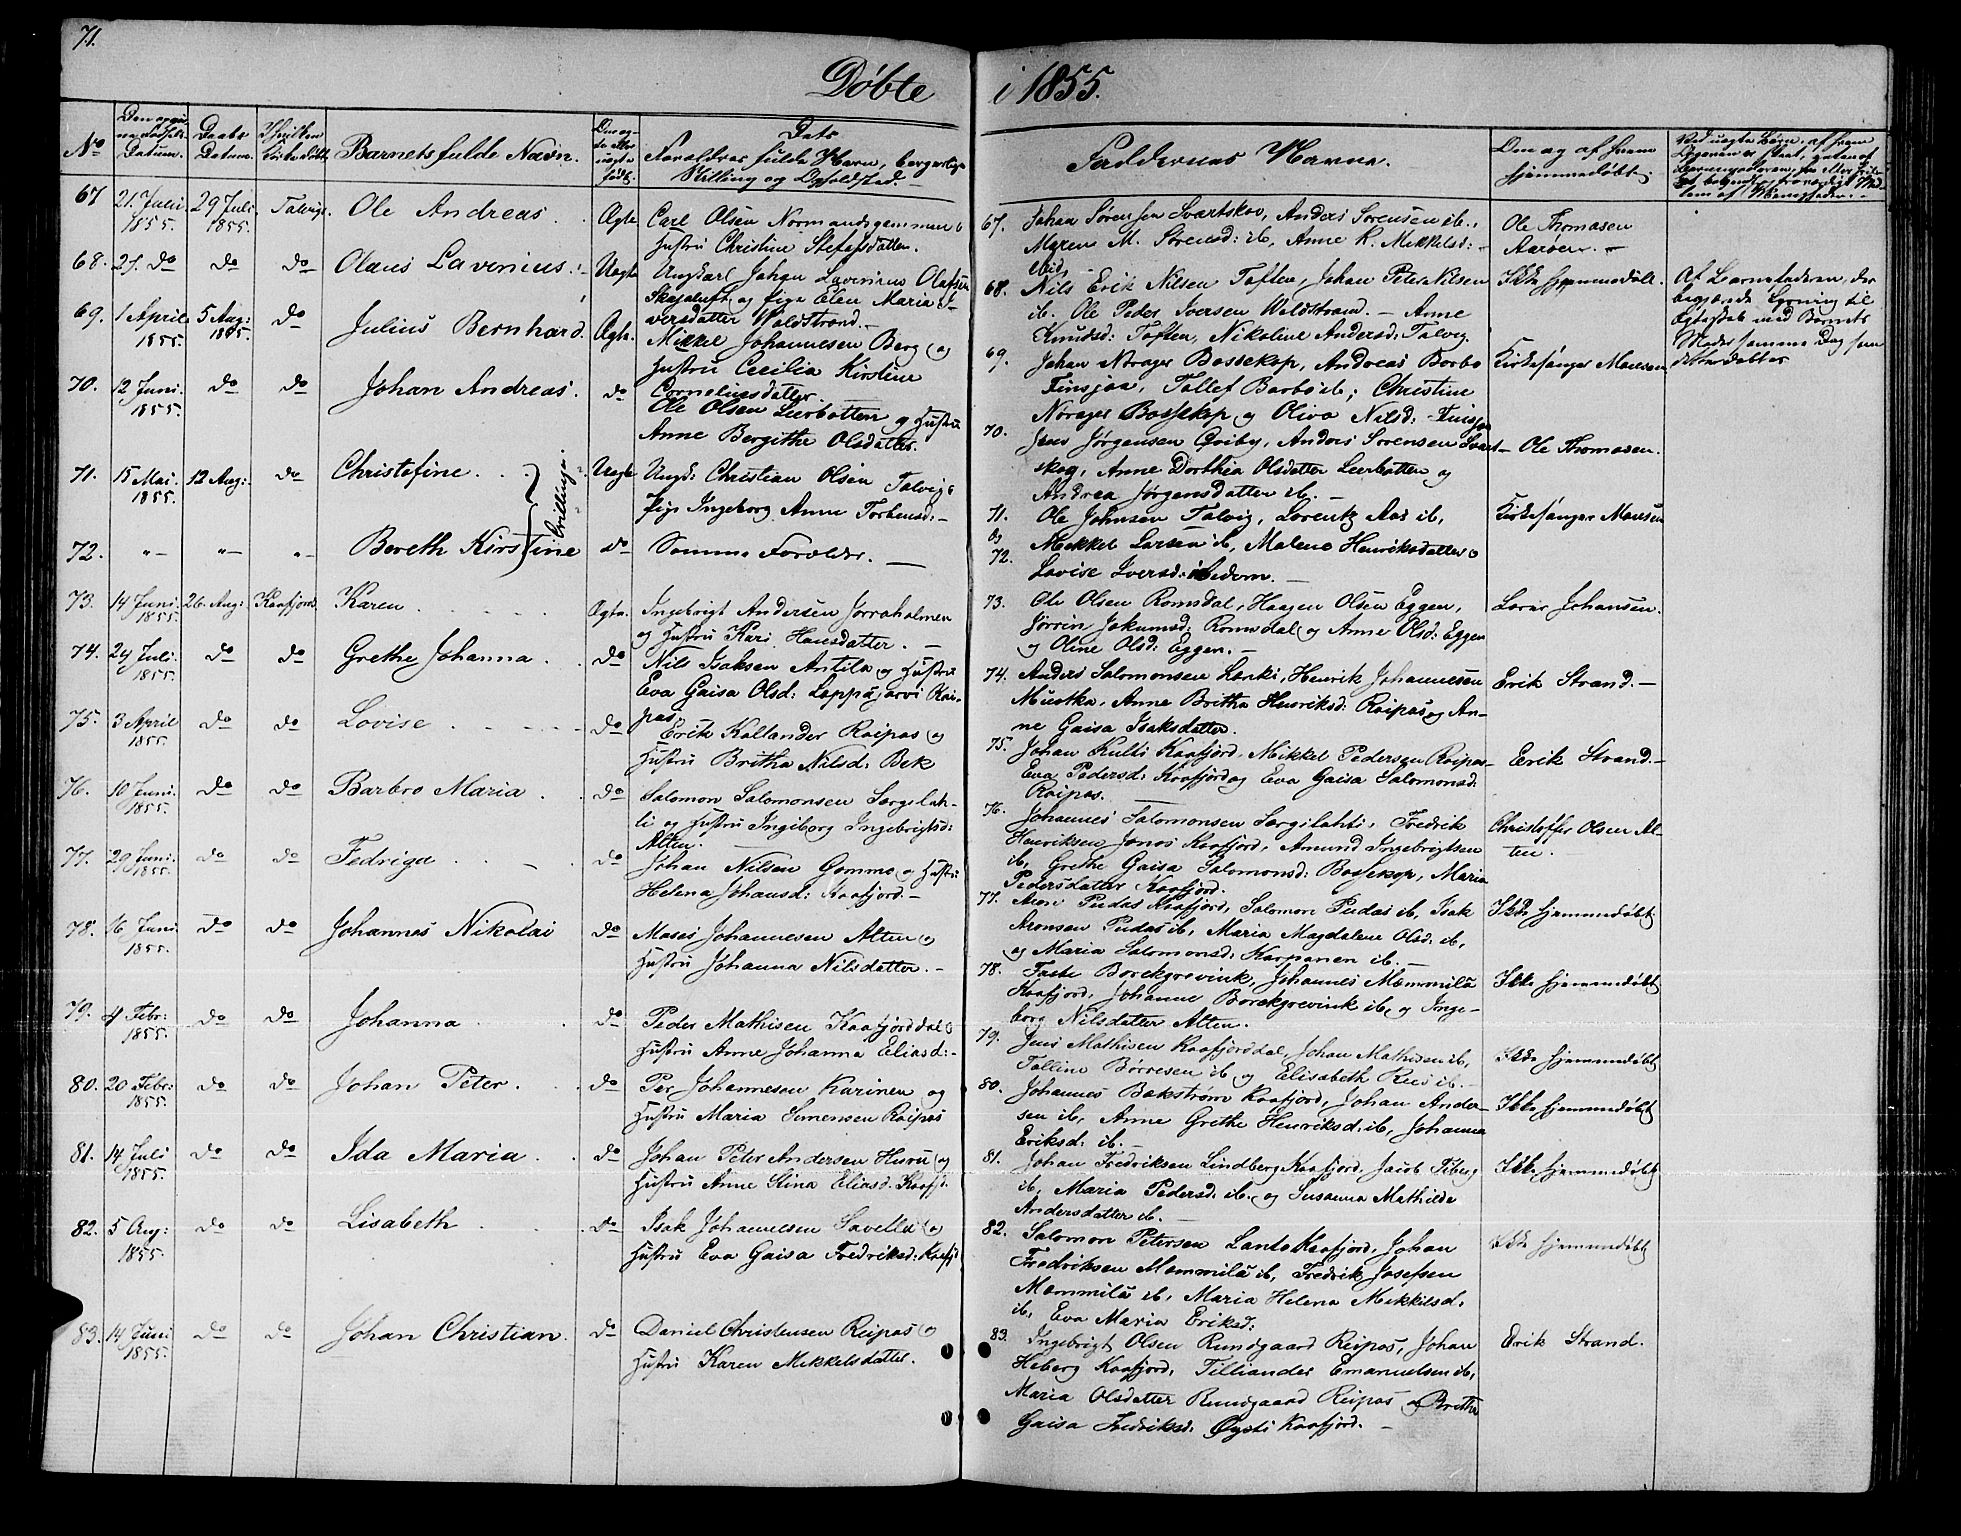 71.
Døbte i 1855.
No
Datum.
Daabs Datum.
Barnets fulde Navn.
Forældres fulde Navn, borgerlige
Stilling og Opholdsted.
Faddernes Navne.
hjemmedøbt.
67 21. Juli 1855. 29 Juli 1855. Talvig. Ole Andreas. Ægte Carl Olsen
Hustru Christine
68. 21. do do do Olaus Lavenius. Uegte Ungkarl Johan Lavenius Olufsen
og Pige Elen Maria I-
versdatter Waldstrand.
69. 1 April 1855. 5 Aug: 1855. do Julius Bernhard. Ægte. Mikkel Johannesen Berg og
Hustru Cecilia Kirstine
Corneliusdatter.
70. 12 Juni. 1855. do do Johan Andreas. do Ole Olsen Leerbotten og Hustru
Anne Bergithe Olsdatter.
71. 15 Mai. 1855. 12 Aug: do Christofine. Uegte Ungk: Christian Olsen Talvig &
Pige Ingeborg Anne
Tvillinge.
72. "- "- "- Bereth Kirstine do Samme Forældre.
73. 14 Juni. 1855. 26. Aug: Kaafjord. Karen Ægte. Ingebrigt Andersen Jorraholmen
og Hustru Kari Hansdatter.
74. 24 Juli. 1855. do do Grethe Johanna. do Nils Isaksen Antila og Hustru
Eva Gaisa Olsd: Lappajarvi Rai-
pas
75. 3 April 1855. do do Lovise do Erik Kollander Raipas og
Hustru Britha Nilsd: Bek
76. 10 Juni. 1855. do do Barbro Maria. do Salomon Salomonsen Sargilah-
ti og Hustru Ingeborg Ingebrigtsd:
Alten.
77. 29 Juni. 1855. do do Fedriga do Johan Nilsen Gomma og Hustru
Helena Johansd: Kaafjord.
78. 16 Juni 1855. do do Johannes Nikolai do Moses Johannesen Alten &
Hustru Johanna Nilsdatter.
79. 4 Febr: 1855. do do Johanna do Peder Mathisen Kaafjorddal &
Hustru Anne Johanna Eliasd:
80. 20 Febr: 1855. do do Johan Peter. do Per Johannesen Karinen og
Hustru Maria Simensen Raipas
81. 14 Juli 1855. do do Ida Maria. do Johan Peter Andersen Huru og
Hustru Anne Stina Eliasd. Kaafj.
82. 5 Aug: 1855. do do Lisabeth do Isak Johannesen Savella &
Hustru Eva Gaisa Fredriksd: Kaafj.
83. 14 Juni 1855. do do Johan Christian. do Daniel Christensen Reipas &
Hustru Karen Mikkelsdatter.
67. Johan Sørensen Svartskov, Anders Sørensen ib.,
Maren M. Sørensd: ib, Anne K. Mikkelsd:
ibid.
Ole Thomasen
68. Nils Erik Nilsen Toften, Johan Peter Nilsen
ib. Ole Peder Iversen Woldstrand. Anne
Knudsd: Toften, Nikoline Andersd: Talvig
Ikke hjemmedøbt.
Af Barnefaderen, der
begjærede Lysning til
Ægteskab med Barnets
Moder samme Dag som
69. Johan Norager Bossekop, Andreas Barbo
Finsjaa, Tollef Barbo ib; Christine
Norager Bossekop og Oliva Nilsd:
Kirkesanger Monsen
70. Jens Jørgensen Qviby, Anders Sørensen Svart-
skog, Anne Dorthia Olsdatter Leerbotten og
Andrea Jørgensdatter ib.
Ole Thomasen.
71. Ole Johnsen Talvig, Lorentz Aas ib,
og
72. Mikkel Larsen ib, Malene Henriksdatter &
Lovise Iversd:
Kirkesanger Monsen
73. Ole Olsen Romsdal, Haagen Olsen Eggen,
Jørrin Jakumsd: Romsdal og Anne Olsd: Eggen
og Oline Olsd: Eggen.
Lærer Johansen.
74. Anders Salomonsen Lanki, Henrik Johannesen
Muotka, Anne Britha Henriksd: Raipas og An-
ne Gaisa Isaksdatter.
Erik Strand.
75. Johan Kulti Kaafjord, Mikkel Pedersen Raipas
Eva Pedersd: Kaafjord og Eva Gaisa Salomonsd:
Raipas.
Erik Strand.
76. Johannes Salomonsen Sargilahti, Fredrik
Henriksen Jonos Kaafjord, Amund Ingebrigtsen
ib, Grethe Gaisa Salomonsd: Bossekop, Maria
Pedersdatter Kaafjord.
Christoffer Olsen Al-
ten.
77. Aron Pudas Kaafjord, Salomon Pudas ib, Isak
Aronsen Pudas ib, Maria Magdalene Olsd: ib,
og Maria Salomonsd: Karpanen ib.
Ikke hjemmedøbt
78. Borckgrevink, Johannes Mommila
Kaafjord, Johanne Borckgrevink ib, og Inge-
borg Nilsdatter Alten.
Ikke hjemmedøbt
79. Jens Mathisen Kaafjorddal, Johan Mathisen ib,
Tolline Børresen ib og Elisabeth Rusi ib.
Ikke hjemmedøbt
80. Johannes Bakstrøm Kaafjord, Johan Ander-
sen ib, Anne Grethe Henriksd. ib, Johanna
Eriksd: ib.
Ikke hjemmedøbt
81. Johan Fredriksen Lindberg Kaafjord, Jacob Friberg
ib, Maria Pedersd. ib. og Susanna Mathilde
Andersdatter ib.
Ikke hjemmedøbt
82. Salomon Petersen Lanto Kaafjord, Johan
Fredriksen Mommila ib, Fredrik Josefsen
Mommila ib, Maria Helena Mikkelsd.
ib, Eva Maria Eriksd:
Ikke hjemmedøbt
83. Ingebrigt Olsen Rundgaard Reipas, Johan
Heberg Kaafjord, Tilliander Emanuelsen ib,
Maria Olsdatter Rundgaard Reipas og Britha
Gaisa Fredriksd: Kaafjord.
Erik Strand.